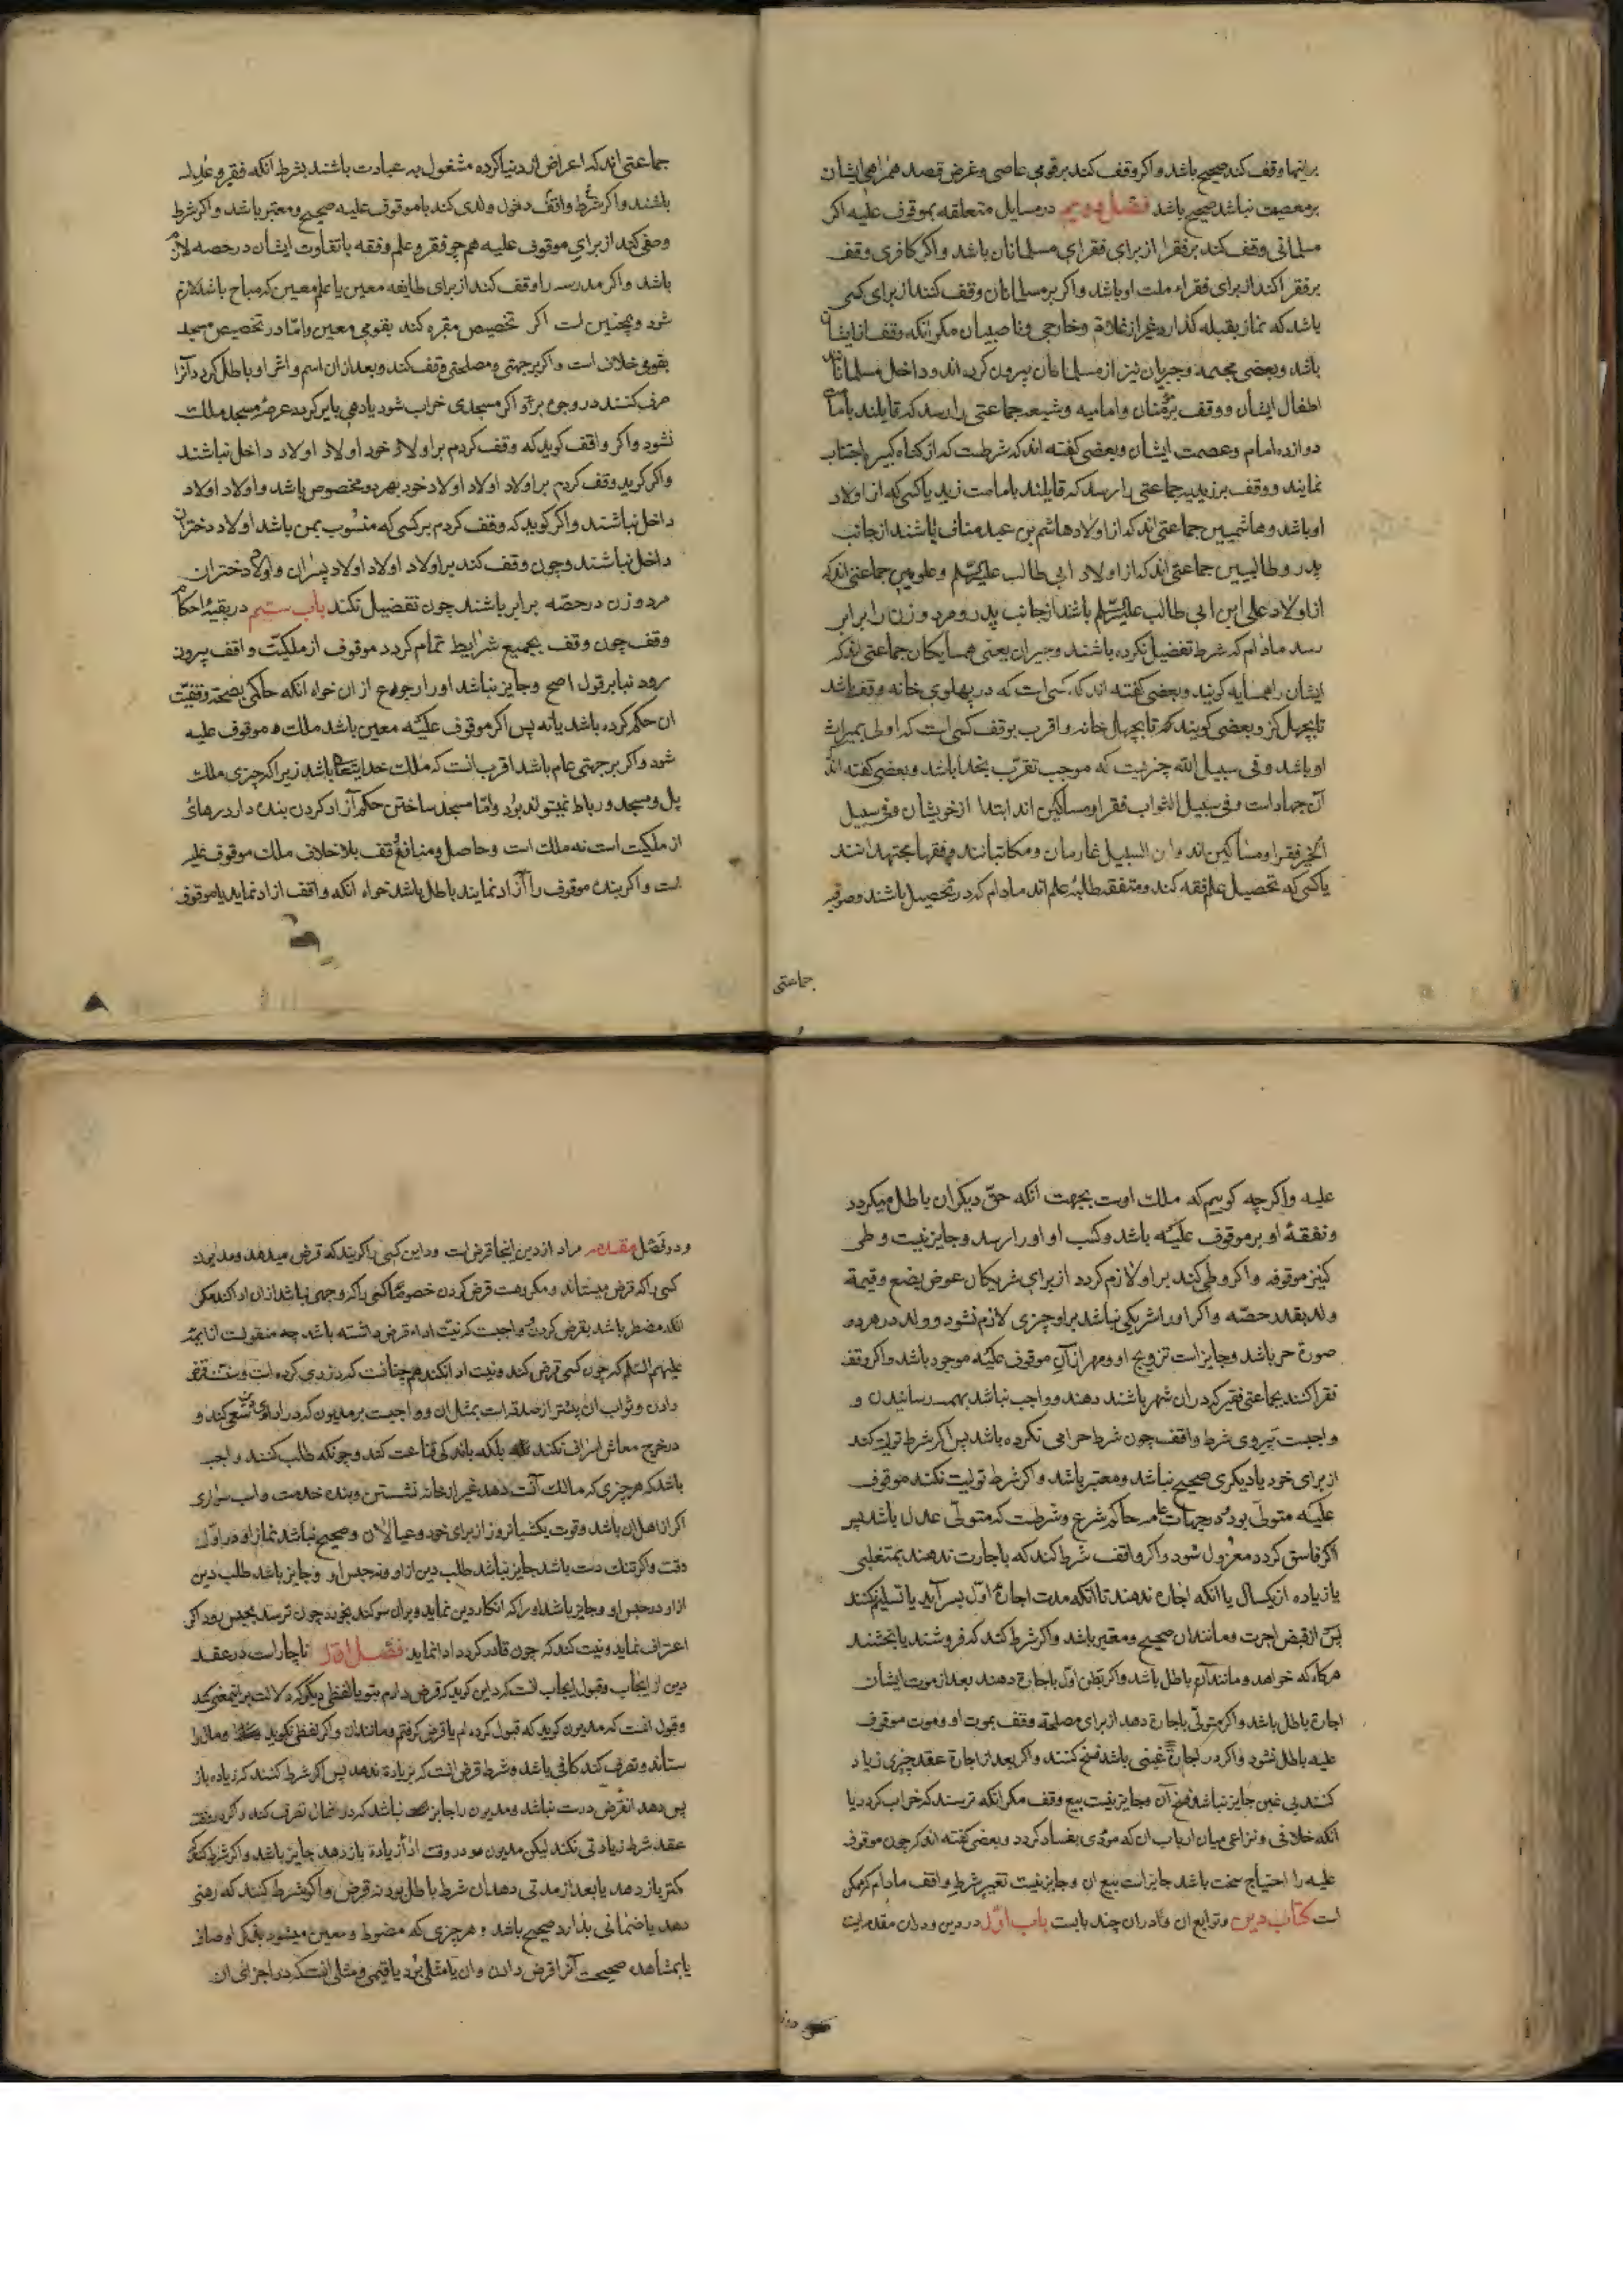 برینها وقف کند صحیح باشد و اکر وقف کند بر قومی عاصی و غرض قصد همراهی ایشان
بر معصیت نباشد صحیح باشد فصل دویم در مسایل متعلقه بموقوف علیه اکر
مسلمانی وقف کند بر فقرا از برای فقرای مسلمانان باشد و اکر کافری وقف
بر فقرا کند از برای فقراء ملت او باشد و اکر بر مسلمانان وقف کنند از برای کسی
باشد که نماز بقبله کذارد غیر از غلاة و خارجی و ناصبیان مکر انکه وقف از ایشان
باشد و بعضی مجسمه و جبریان نیز از مسلمانان بیرون کرده اند و داخل مسلمانانند
اطفال ایشان و وقف بر مؤمنان و امامیه و شیعه جماعتی را رسد که قایلند بامامت
دوازده امام و عصمت ایشان و بعضی کفته اند که شرطست که از کناه کبیره اجتناب
نمایند و وقف بر زیدیه جماعتی را رسد که قایلند بامامت زید یا کسی که از اولاد
او باشد و هاشمیین جماعتی اند که از اولاد هاشم بن عبد مناف باشند از جانب
پدر و طالبیین جماعتی اند که از اولاد ابی طالب علیه السلام و علویین جماعتی اند که
از اولاد علی ابن ابی طالب علیه السلام باشند از جانب پدر و مرد و زن را برابر
رسد مادام که شرط تفضیل نکرده باشند و جیران یعنی همسایکان جماعتی اند که
ایشان را همسایه کویند و بعضی کفته اند که کسی است که در پهلوی خانه وقف باشد
تا بچهل کز و بعضی کویند که تا بچهل خانه و اقرب بوقف کسی است که اولی بمیراث
او باشد و فی سبیل الله چیزیست که موجب تقرّب بخدا باشد و بعضی کفته اند
آن جهاد است و فی سبیل الثواب فقرا و مساکین اند ابتدا از خویشان و فی سبیل
الخیر فقرا و مساکین اند و ابن السبیل غارمان و مکاتبانند و فقها مجتهدانند
یا کسی که تحصیل علم فقه کند و متفقه طلبهٔ علم اند مادام که در تحصیل باشند و صوفیه
جماعتی
جماعتی اند که اعراض از دنیا کرده مشغول به عبادت باشند بشرط انکه فقیر و عدل
باشند و اکر شرط واقف دخول ولدی کند با موقوف علیه صحیح و معتبر باشد و اکر شرط
وصفی کند از برای موقوف علیه هم چو فقر و علم و فقه با تفاوت ایشان در حصه لازم
باشد و اکر مدرسه را وقف کند از برای طایفه معین یا علم معین که مباح باشد لازم
شود و همچنین است اکر تخصیص مقبره کند بقومی معین و امّا در تخصیص مسجد
بقومی خلاف است و اکر بر جهتی و مصلحتی وقف کند و بعد از ان اسم و اثر او باطل کردد آنرا
صرف کنند در وجوه برّ و اکر مسجدی خراب شود یا دهی بایر کردد عرصهٔ مسجد ملک
نشود و اکر واقف کوید که وقف کردم بر اولاد خود اولاد اولاد داخل نباشند
و اکر کوید وقف کردم بر اولاد اولاد اولاد خود بهر دو مخصوص باشد و اولاد اولاد
داخل نباشند و اکر کوید که وقف کردم بر کسی که منسوب بمن باشد اولاد دختران
داخل نباشند و چون وقف کند بر اولاد اولاد اولاد پسران و اولاد دختران
مرد و زن در حصّه برابر باشند چون تفضیل نکند باب سیم در بقیهٔ احکام
وقف چون وقف بجمیع شرایط تمام کردد موقوف از ملکیّت واقف بیرون
رود بنا بر قول اصح و جایز نباشد او را رجوع از ان خواه انکه حاکمی بصحة وقفیّت
ان حکم کرده باشد یا نه پس اکر موقوف علیه معین باشد ملک موقوف علیه
شود و اکر بر جهتی عام باشد اقرب انست که ملک خدایتعالی باشد زیرا که چیزی ملک
پل و مسجد و رباط نمیتواند بود و امّا مسجد ساختن حکم آزاد کردن بنده دارد رهائ
از ملکیت است نه ملک است و حاصل و منافع وقف بلا خلاف ملک موقوف علیه
است و اکر بنده موقوف را آزاد نمایند باطل باشد خواه انکه واقف ازاد نماید یا موقوف
علیه و اکر چه کوییم که ملک اوست بجهت انکه حقّ دیکران باطل میکردد
و نفقهٔ او بر موقوف علیه باشد و کسب او او را رسد و جایز نیست وطی
کنیز موقوفه و اکر وطی کند بر او لازم کردد از برای شریکان عوض بضع و قیمة
ولد بقدر حصّه و اکر او را شریکی نباشد بر او چیزی لازم نشود و ولد در هر دو
صورة حر باشد و جایز است تزویج او و مهر از آنِ موقوف علیه موجود باشد و اکر وقف
فقرا کنند بجماعتی فقیر که در ان شهر باشند دهند و واجب نباشد بهمه رسانیدن و
واجبست پیروی شرط واقف چون شرط حرامی نکرده باشد پس اکر شرط تولیت کند
از برای خود یا دیکری صحیح باشد و معتبر باشد و اکر شرط تولیت نکند موقوف
علیه متولّی بود و در جهات عامه حاکم شرع و شرطست که متولّی عدل باشد پس
اکر فاسق کردد معزول شود و اکر واقف شرط کند که باجارت ندهند بمتغلبی
یا زیاده از یکسال یا انکه اجاره ندهند تا انکه مدت اجارهٔ اوّل بسر آید یا تسلیم نکنند
پس از قبض اجرت و مانند ان صحیح و معتبر باشد و اکر شرط کند که فروشند یا بخشند
هرکاه که خواهد و مانند آن باطل باشد و اکر بطن اوّل باجارة دهند بعد از موت ایشان
اجارة باطل باشد و اکر متولّی باجارة دهد از برای مصلحة وقف بموت او و موت موقوف
علیه باطل نشود و اکر در اجارة غبنی باشد فسخ کنند و اکر بعد از اجارة عقد چیزی زیاد
کنند بی غبن جایز نباشد فسخ آن و جایز نیست بیع وقف مکر انکه ترسند که خراب کردد یا
انکه خلافی و نزاعی میان ارباب ان که مؤدی بفساد کردد و بعضی کفته اند که چون موقوف
علیه را احتیاج سخت باشد جایز است بیع ان و جایز نیست تغییر شرط واقف مادام که ممکن
است کتاب دین و توابع ان و در ان چند بابست باب اوّل در دین و در ان مقدمه ایست
و دو فصل مقدمه مراد از دین اینجا قرض است و داین کسی را کویند که قرض میدهد و مدیون
کسی را که قرض میستاند و مکروهست قرض کردن خصوصًا کسی را که وجهی نباشد از ان ادا کند مکر
انکه مضطر باشد بقرض کردن و واجبست که نیّت اداء قرض داشته باشد چه منقولست از ایمّه
علیهم السلام که چون کسی قرض کند و نیت ادا نکند هم چنانست که دزدی کرده است و سنّتست قرض
دادن و ثواب ان بیشتر از صدقه است بمثل ان و واجبست بر مدیون که در ادای آن سعی کند و
در خرج معاش اسراف نکند بلکه باندکی قناعت کند و چونکه طلب کنند واجب
باشد که هر چیزی که مالک آنست دهد غیر از خانهٔ نشستن و بنده خدمت و اسب سواری
اکر از اهل ان باشد و قوت یکشبانروز از برای خود و عیالان و صحیح نباشد نماز او در اوّل
وقت و اکر تنک دست باشد جایز نباشد طلب دین از او و نه حبس او و جایز باشد طلب دین
از او در حبس او و جایز باشد او را که انکار دین نماید و بران سوکند بخورد چون ترسد بحبس رود اکر
اعتراف نماید و نیت کند که چون قادر کردد ادا نماید فصل اوّل ناچار است در عقد
دین از ایجاب و قبول ایجاب انست که داین کوید که قرض دادم بتو یا لفظی دیکر که دلالت برینمعنی کند
و قبول انست که مدیون کوید که قبول کرده ام یا قرض کرفتم و مانند ان و اکر لفظی نکوید و مال را
ستاند و تصرف کند کافی باشد و شرط قرض انست که بزیادة ندهد پس اکر شرط کنند که زیاده باز
پس دهد انقرض درست نباشد و مدیون را جایز نباشد که در انمال تصرف کند و اکر در وقت
عقد شرط زیادتی نکند لیکن مدیون در وقت ادا زیادة بازدهد جایز باشد و اکر شرط کند که
کمتر بازدهد یا بعد از مدتی دهد ان شرط باطل بود نه قرض و اکر شرط کنند که رهنی
دهد یا ضمانی بدارد صحیح باشد و هر چیزی که مضبوط و معین میشود بذکر اوصاف
یا بمشاهده صحیحست آنرا قرض دادن و ان یا مثلی بود یا قیمی و مثلی انست که در اجزای ان